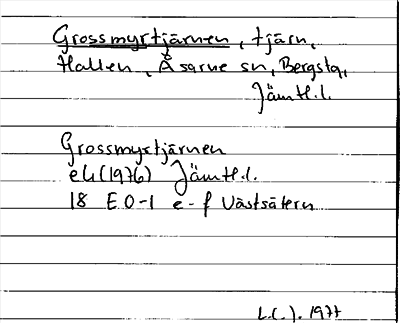 Grossmyrtjärnen, tjärn,
Hallen, Åsarne sn, Bergs tg,
Jämtl.l.
Grossmyrtjärnen
ek (1976) Jämtl.l.
18 E 0-1 e-f Västsätern
1977